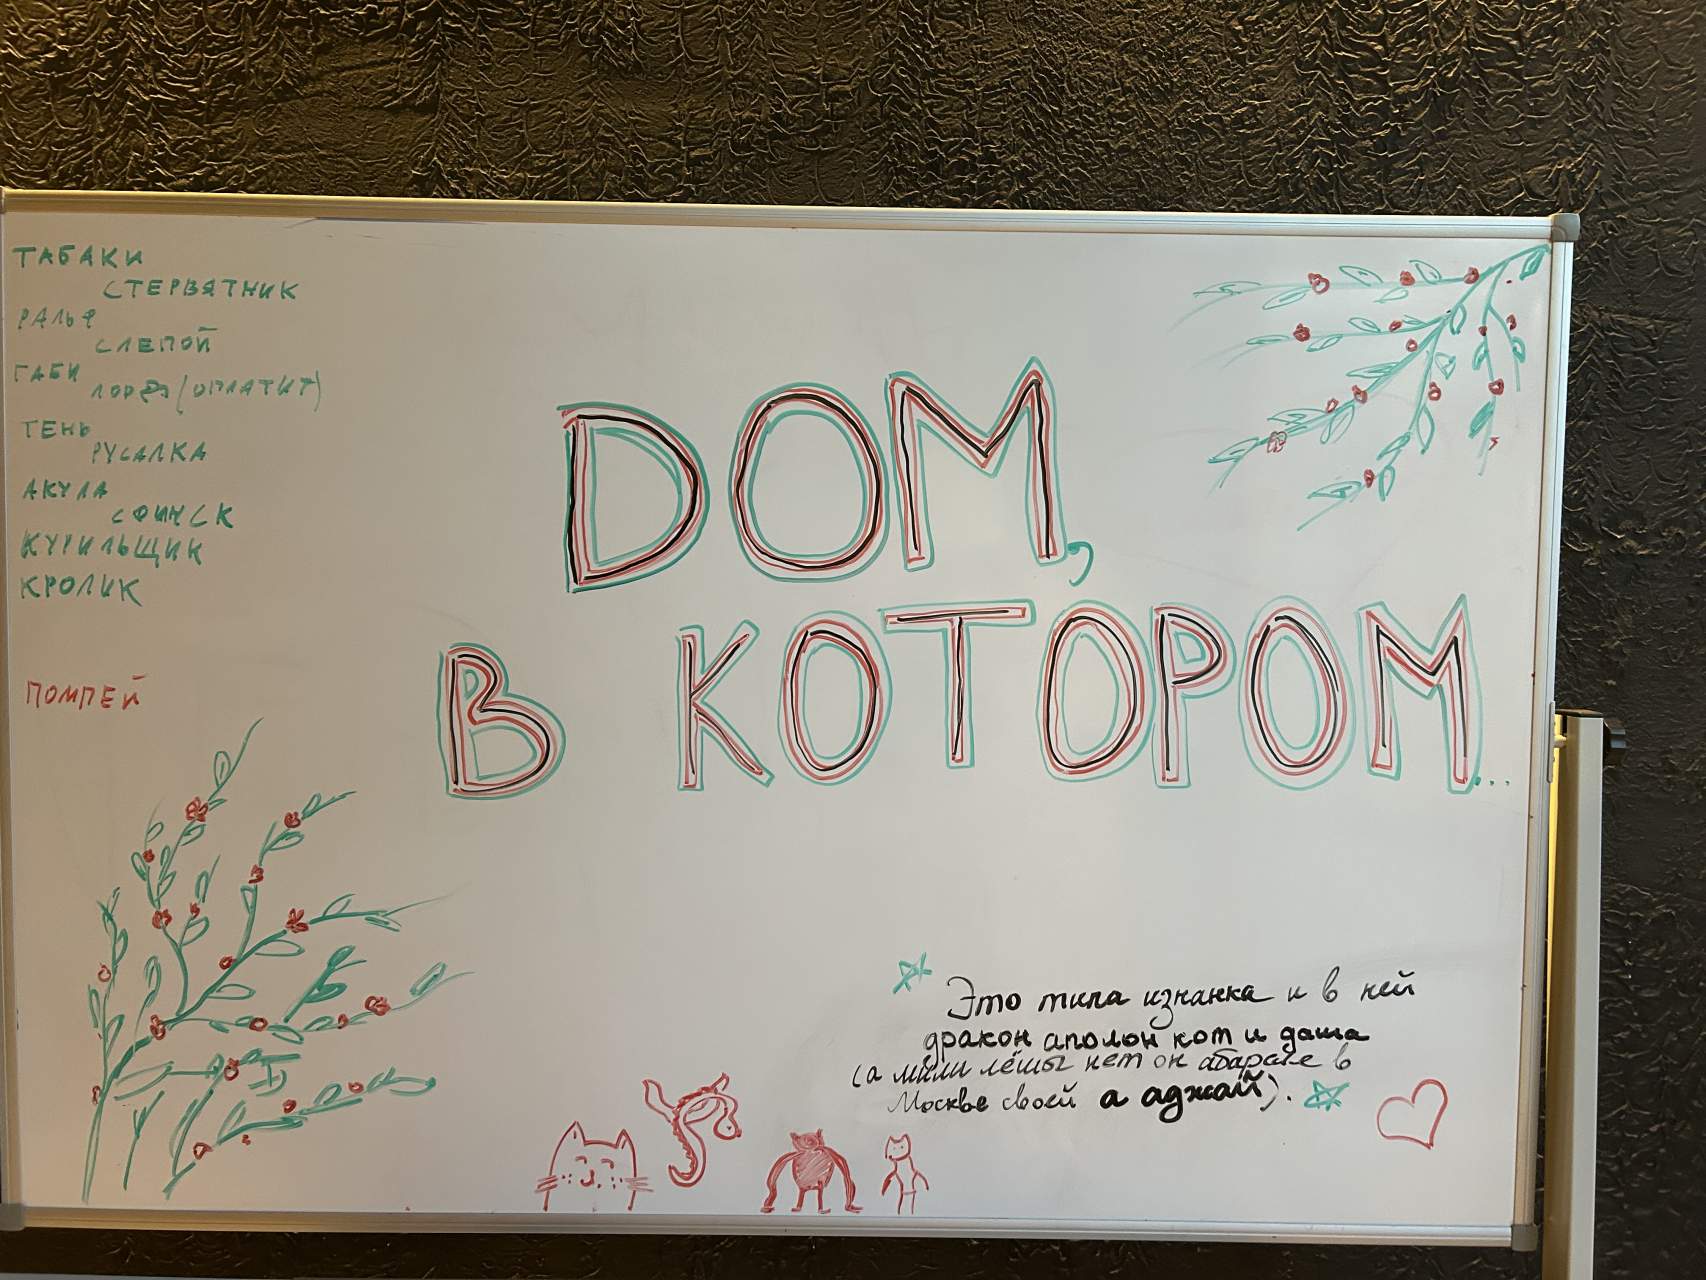 ТАБАКИ
СТЕРВЯТНИК
РАЛЬФ
СЛЕПОЙ
ГАБИ
ЛОРД (ОПЛАТИТ)
ТЕНЬ
РУСАЛКА
АКУЛА
СФИНСК
КУРИЛЬЩИК
КРОЛИК
ПОМПЕЙ
ДОМ,
В КОТОРОМ...
Это типа изнанка и в ней
дракон аполон кот и даша
(а мили лёшы нет он в
Москве своей а аджай).